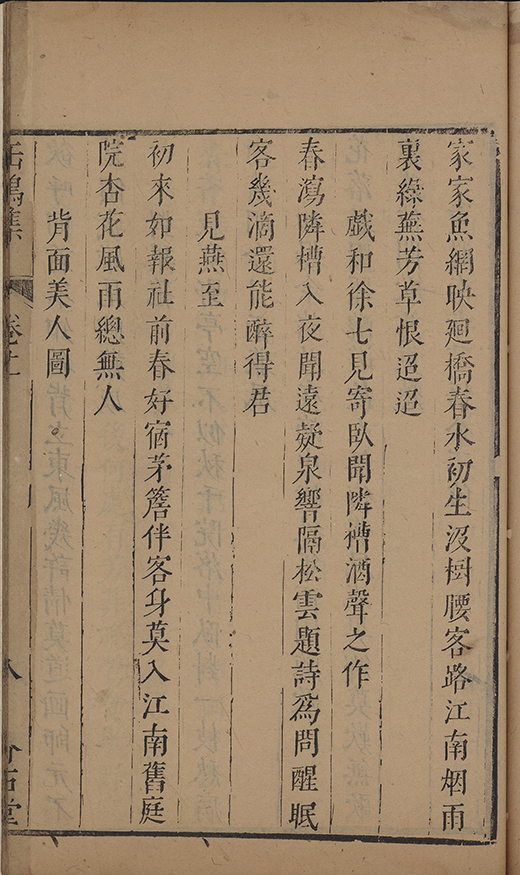 家家魚網映廻橋春水初生沒樹腰客路江南烟雨
裏綠蕪芳草恨迢迢
戯和徐七見寄臥聞隣槽酒聲之作
春瀉隣槽入夜聞遠疑泉響隔松雲題詩爲問醒眠
客幾滴還能醉得君
見燕至
初來如報社前春好宿茅簷伴客身莫入江南舊庭
院杏花風雨總無人
背面美人圖
鳴集
卷十
八
石堂